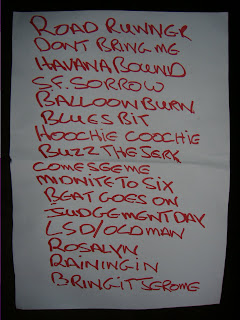 ROAD RUNNER
DONT BRING ME
HAVANA BOUND
S.F. SORROW
BALLOON BURN
BLUES BIT
HOOCHIE COOCHIE
BUZZ THE JERK
COME SEE ME
MIDNITE TO SIX
BEAT GOES ON
JUDGEMENT DAY
LSD/OLD MAN
ROSALYN
RAINING IN
BRING IT JEROME